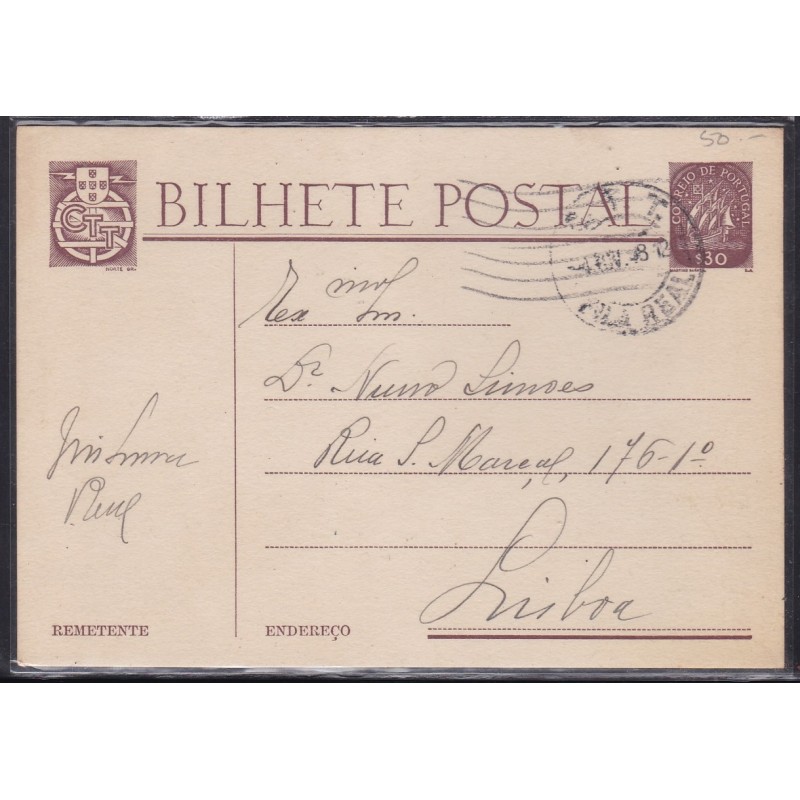 50.-
CTT
NORTE GR.
BILHETE POSTAL
CORREIO DE PORTUGAL
$30
VILA REAL
Exmo Sm.
Dr Nuno Simoes
Rua S. Marçal, 176-1º
Lisboa
Real
REMETENTE
ENDEREÇO